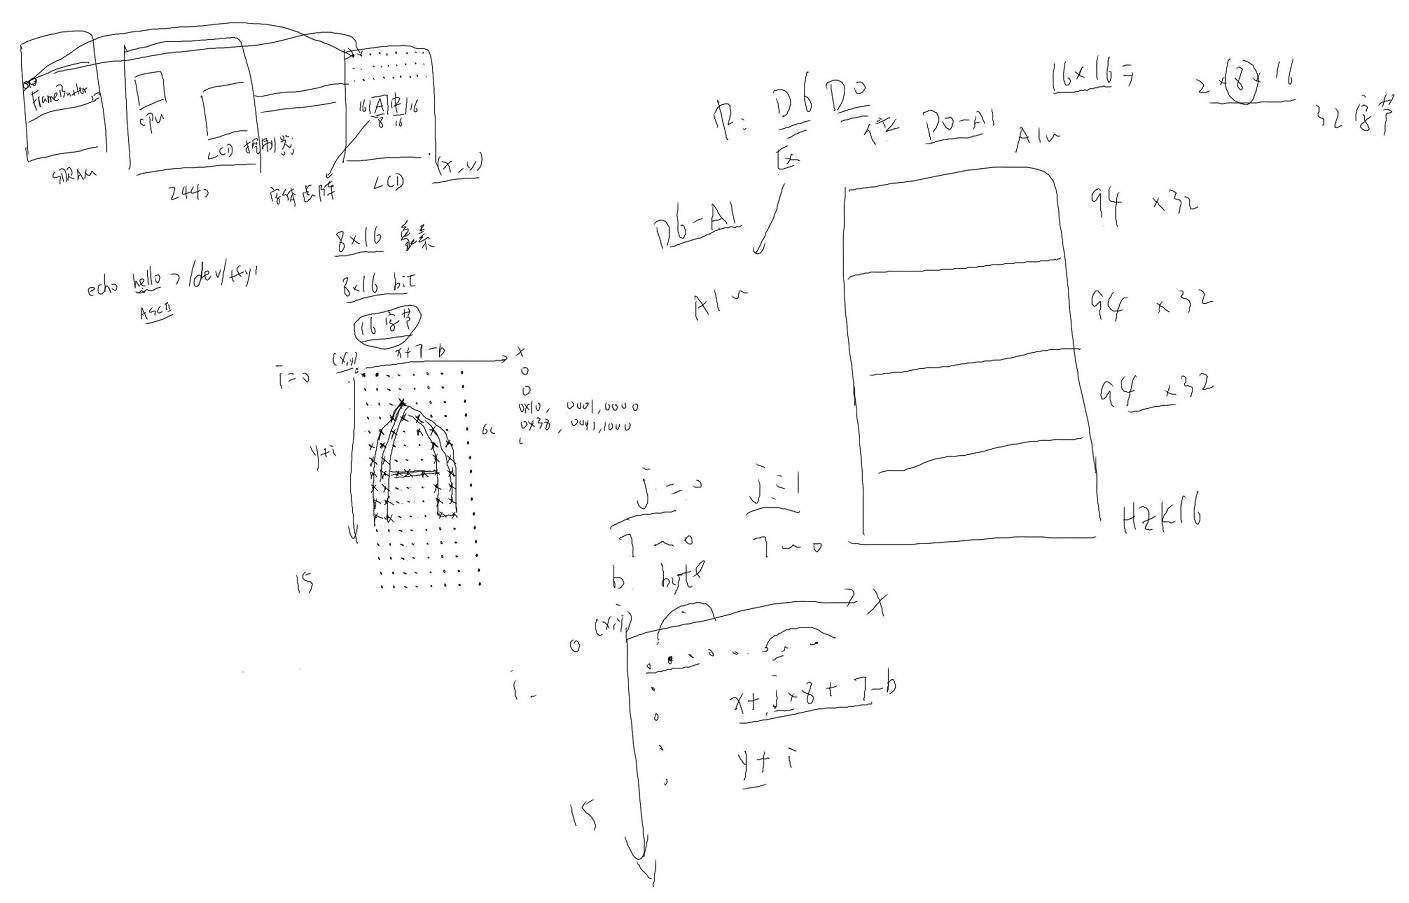 FrameBuffer
SDRAM
CPU
LCD 控制器
2440
16 A 中 16
8 16
LCD
(x,y)
字体点阵
8×16 象素
8×16 bit
16字节
echo hello > /dev/tty1
ASCII
(x,y) x+7-b x
i=0
0
0
0x10, 0001,0000
0x38, 0011,1000
6c
y+i
15
中: D6 D0
区 位 D0-A1
D6-A1
A1~
16×16=
2×8×16
32字节
A1~
94 ×32
94 ×32
94 ×32
HZK16
j=0 j=1
7~0 7~0
b byte
(x,y) X
0
i
x+j×8+7-b
y+i
15
Y